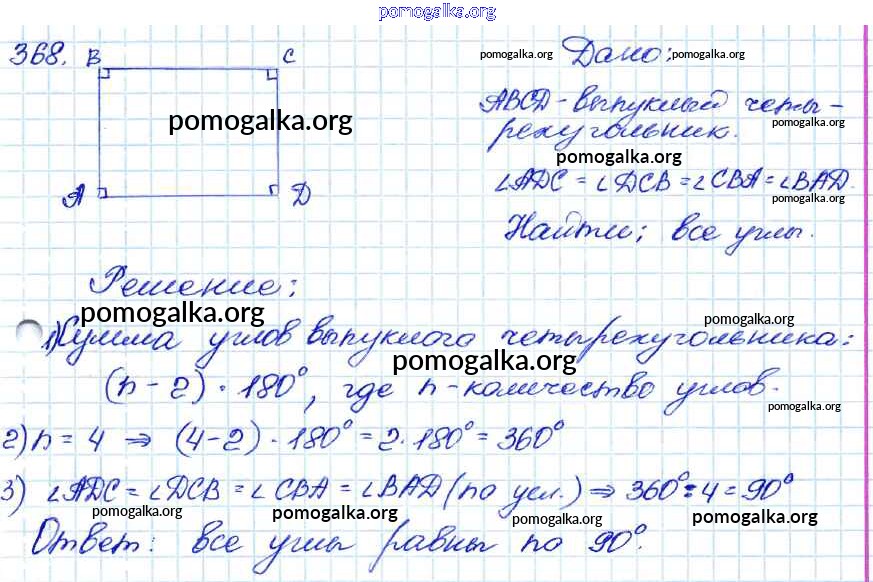 pomogalka.org
368. B C pomogalka.org Дано: pomogalka.org
ABCD - выпуклый четы-
pomogalka.org рехугольник. pomogalka.org
pomogalka.org
∠ADC = ∠DCB = ∠CBA = ∠BAD.
A D pomogalka.org
Найти: все углы.
pomogalka.org
Решение:
pomogalka.org pomogalka.org
1) Сумма углов выпуклого четырехугольника:
pomogalka.org
(n - 2) · 180°, где n - количество углов.
pomogalka.org
2) n = 4 ⇒ (4-2) · 180° = 2 · 180° = 360°
3) ∠ADC = ∠DCB = ∠CBA = ∠BAD (по усл.) ⇒ 360° : 4 = 90°
pomogalka.org pomogalka.org pomogalka.org pomogalka.org
Ответ: все углы равны по 90°.